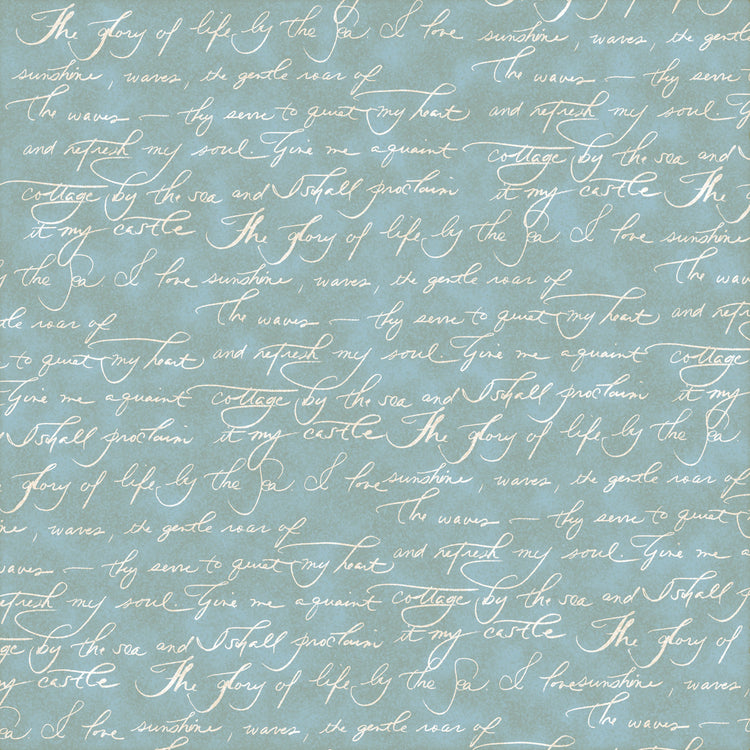 The glory of life by the Sea. I love sunshine, waves, the gentle
sunshine, waves, the gentle roar of The waves — thy serve
The waves — thy serve to quiet my heart and refresh my soul.
and refresh my soul. Give me a quaint cottage by the sea and
cottage by the sea and I shall proclaim it my castle The
it my castle The glory of life by the Sea. I love sunshine
the Sea. I love sunshine, waves, the gentle roar of The wav
roar of The waves — thy serve to quiet my heart and
to quiet my heart and refresh my soul. Give me a quaint cottage
Give me a quaint cottage by the sea and I shall proclaim it my
I shall proclaim it my castle The glory of life by the Sea.
glory of life by the Sea. I love sunshine, waves, the gentle roar of
waves, the gentle roar of The waves — thy serve to quiet
waves — thy serve to quiet my heart and refresh my soul. Give me a
refresh my soul. Give me a quaint cottage by the sea and I shall
by the sea and I shall proclaim it my castle The glory of
my castle The glory of life by the Sea. I love sunshine, waves
I love sunshine, waves, the gentle roar of The waves